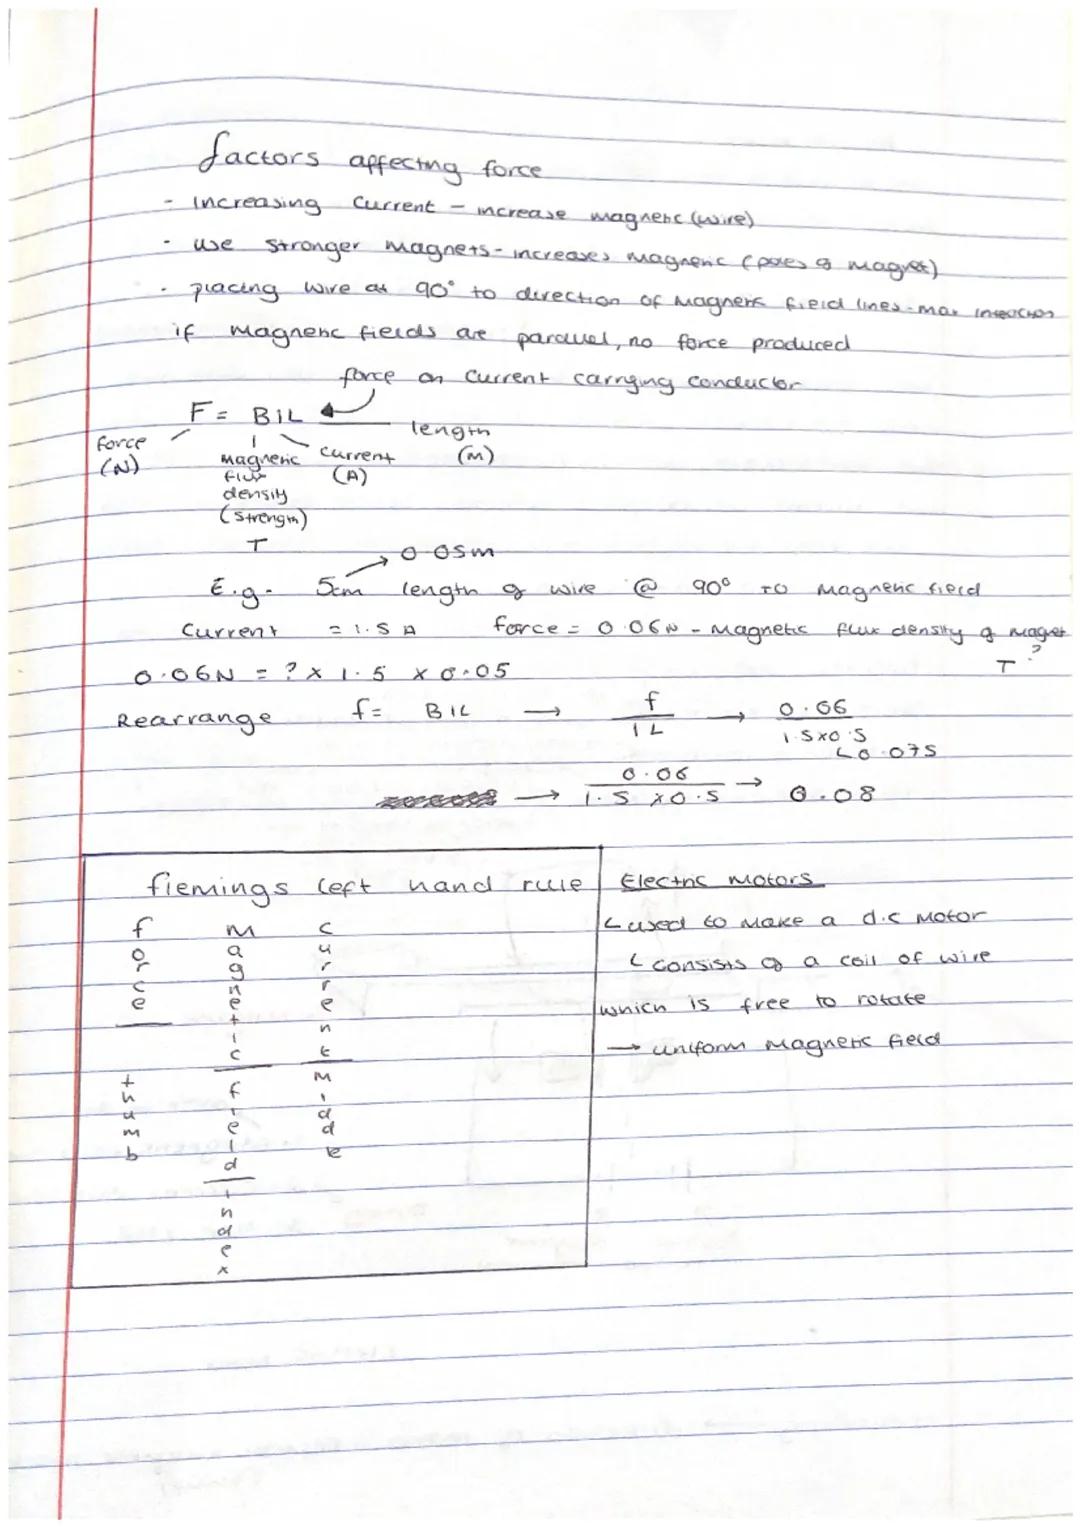 factors affecting force
- Increasing Current - increase magnetic (wire)
- use stronger magnets - increases magnetic (poles of magnet)
- placing wire at 90° to direction of magnetic field lines - max interaction
if magnetic fields are parallel, no force produced
force on current carrying conductor
F = BIL
force (N)
magnetic flux density (strength) T
current (A)
length (m)
0.05m
E.g. 5cm length of wire @ 90° to magnetic field
Current = 1.5 A force = 0.06N - magnetic flux density of magnet T?
0.06N = ? x 1.5 x 0.05
Rearrange f = BIL → f / IL → 0.06 / 1.5x0.5
0.075
→ 0.06 / 1.5 x 0.5 → 0.08
flemings left hand rule
force | thumb
magnetic | field | index
current | middle
Electric motors
used to make a d.c motor
consists of a coil of wire
which is free to rotate
→ uniform magnetic field